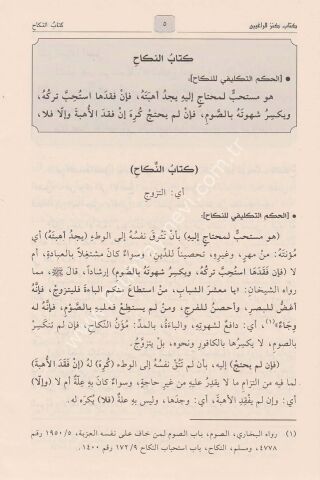 كتاب كنز الراغبين
٥
كتاب النكاح
كتابُ النكاحِ
● [الحكم التكليفي للنكاح]:
هو مستحبٌّ لمحتاجٍ إليهِ يجدُ أُهبَتَهُ، فإنْ فقدَها استُحِبَّ تركُهُ،
ويكسِرُ شهوتَهُ بالصَّومِ، فإنْ لم يحتجْ كُرِهَ إنْ فقدَ الأُهبةَ وإلَّا فلا،
(كتابُ النِّكاحِ)
أي: التزوجِ
● [الحكم التكليفي للنكاح]:
(هو مستحبٌّ لمحتاجٍ إليهِ) بأنْ تتُوقَ نفسُهُ إلى الوطءِ (يجدُ أُهبتَهُ) أي
مُؤْنَتَهُ: منْ مهرٍ، وغيرِهِ، تحصيناً للدِّينِ، وسواءٌ كانَ مشتغِلاً بالعبادةِ، أم
لا (فإنْ فقدَها استُحِبَّ تركُهُ، ويكسِرُ شهوتَهُ بالصومِ) إرشاداً، قالَ ﷺ، مما
رواهُ الشيخانِ: «يا معشرَ الشبابِ، منْ استطاعَ منكم الباءةَ فليتزوجْ، فإنَّهُ
أغضُّ للبصرِ، وأحصنُ للفرجِ، ومنْ لم يستطعْ فعليهِ بالصَّوْمِ، فإنَّهُ له
وِجَاءٌ»(١)، أي: دافعٌ لشهوتِهِ، والباءةُ، بالمدِّ: مُؤَنُ النِّكاحِ، فإنْ لم تنكسِرْ
بالصومِ، لا يكسِرُها بالكافورِ ونحوِهِ، بل يتزوجُ.
(فإنْ لم يحتجْ) إليهِ، بأنْ لم تتُقْ نفسُهُ إلى الوطءِ (كُرِهَ) لهُ (إنْ فقدَ الأُهبةَ)
لما فيه من التزامِ ما لا يقدِرُ عليهِ من غيرِ حاجةٍ، وسواءٌ كانَ بهِ عِلَّةٌ أم لا (وإلَّا)
أي: وإنْ لم يفقِدِ الأُهبةَ، أي: وجدَها، وليس بهِ عِلَّةٌ (فلا) يُكرَه له.
(١) رواه البخاري، الصوم، باب الصوم لمن خاف على نفسه العزبة، ١٩٥٠/٥ رقم
٤٧٧٨، ومسلم، النكاح، باب استحباب النكاح ١٧٢/٩ رقم ١٤٠٠.